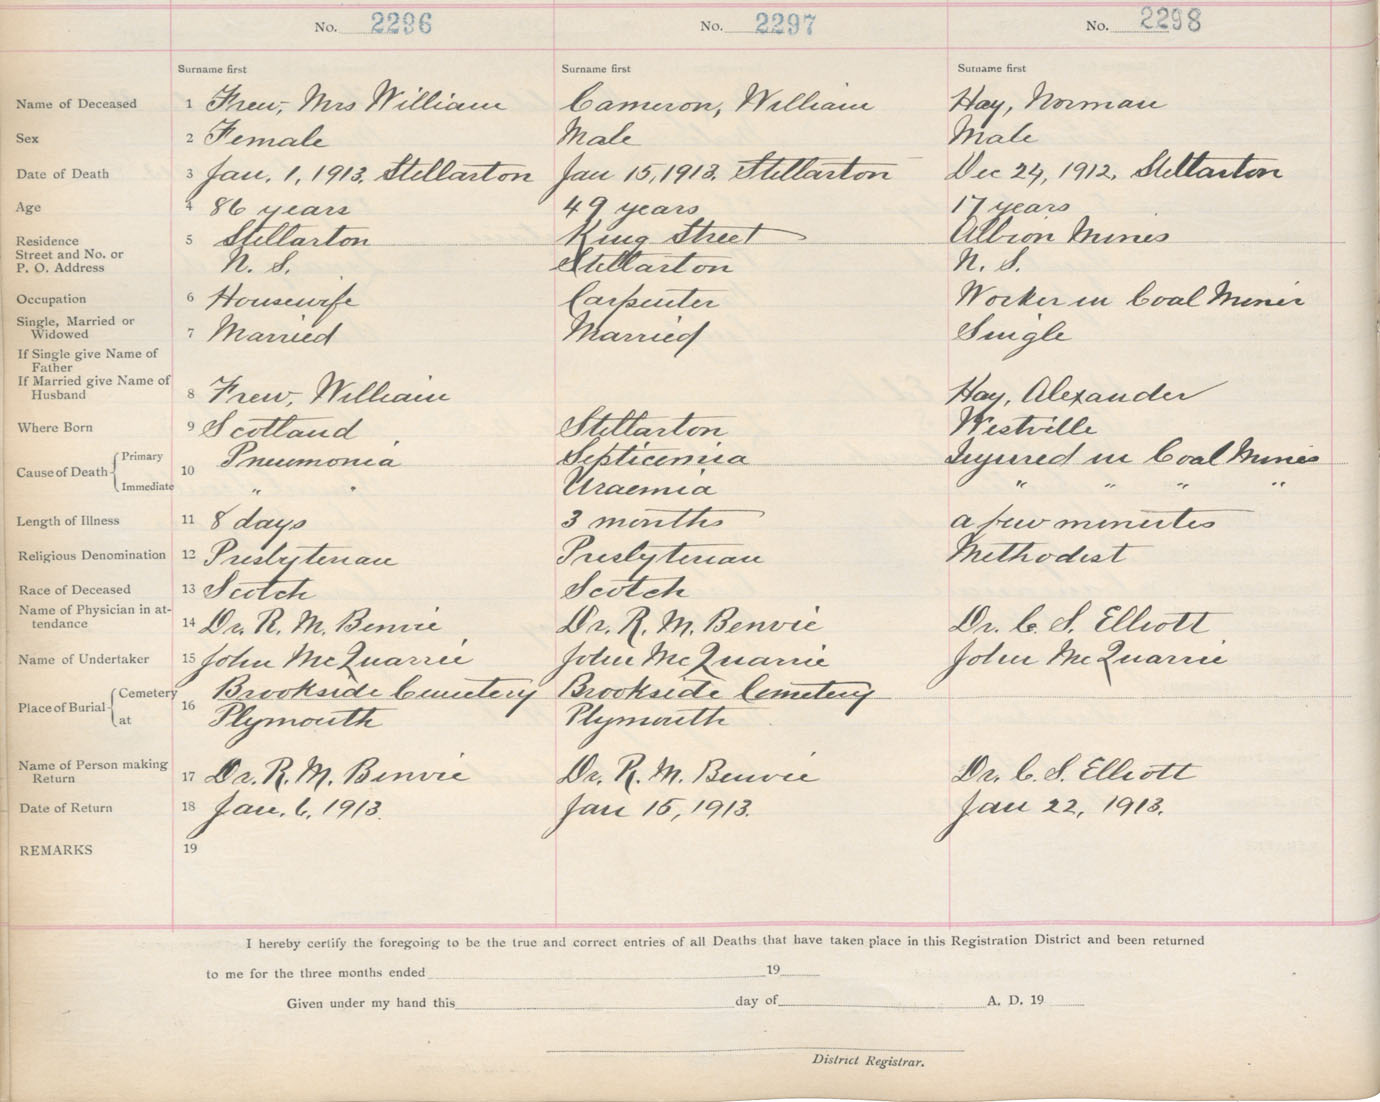 No. 2296 No. 2297 No. 2298
Surname first Surname first Surname first
Name of Deceased 1 Frew, Mrs William Cameron, William Hay, Norman
Sex 2 Female Male Male
Date of Death 3 Jan. 1, 1913, Stellarton Jan 15, 1913, Stellarton Dec 24, 1912, Stellarton
Age 4 86 years 49 years 17 years
Residence 5 Stellarton King Street Albion Mines
Street and No. or
P. O. Address N. S. Stellarton N. S.
Occupation 6 Housewife Carpenter Worker in Coal Mines
Single, Married or
Widowed 7 Married Married Single
If Single give Name of
Father
If Married give Name of
Husband 8 Frew, William Hay, Alexander
Where Born 9 Scotland Stellarton Westville
Cause of Death Primary 10 Pneumonia Septicemia Injured in Coal Mines
Immediate " " Uraemia " " " "
Length of Illness 11 8 days 3 months a few minutes
Religious Denomination 12 Presbyterian Presbyterian Methodist
Race of Deceased 13 Scotch Scotch
Name of Physician in at-
tendance 14 Dr. R. M. Benvie Dr. R. M. Benvie Dr. C. S. Elliott
Name of Undertaker 15 John McQuarrie John McQuarrie John McQuarrie
Place of Burial Cemetery 16 Brookside Cemetery Brookside Cemetery
at Plymouth Plymouth
Name of Person making
Return 17 Dr. R. M. Benvie Dr. R. M. Benvie Dr. C. S. Elliott
Date of Return 18 Jan. 6, 1913. Jan 15, 1913. Jan 22, 1913.
REMARKS 19
I hereby certify the foregoing to be the true and correct entries of all Deaths that have taken place in this Registration District and been returned
to me for the three months ended 19
Given under my hand this day of A. D. 19
District Registrar.